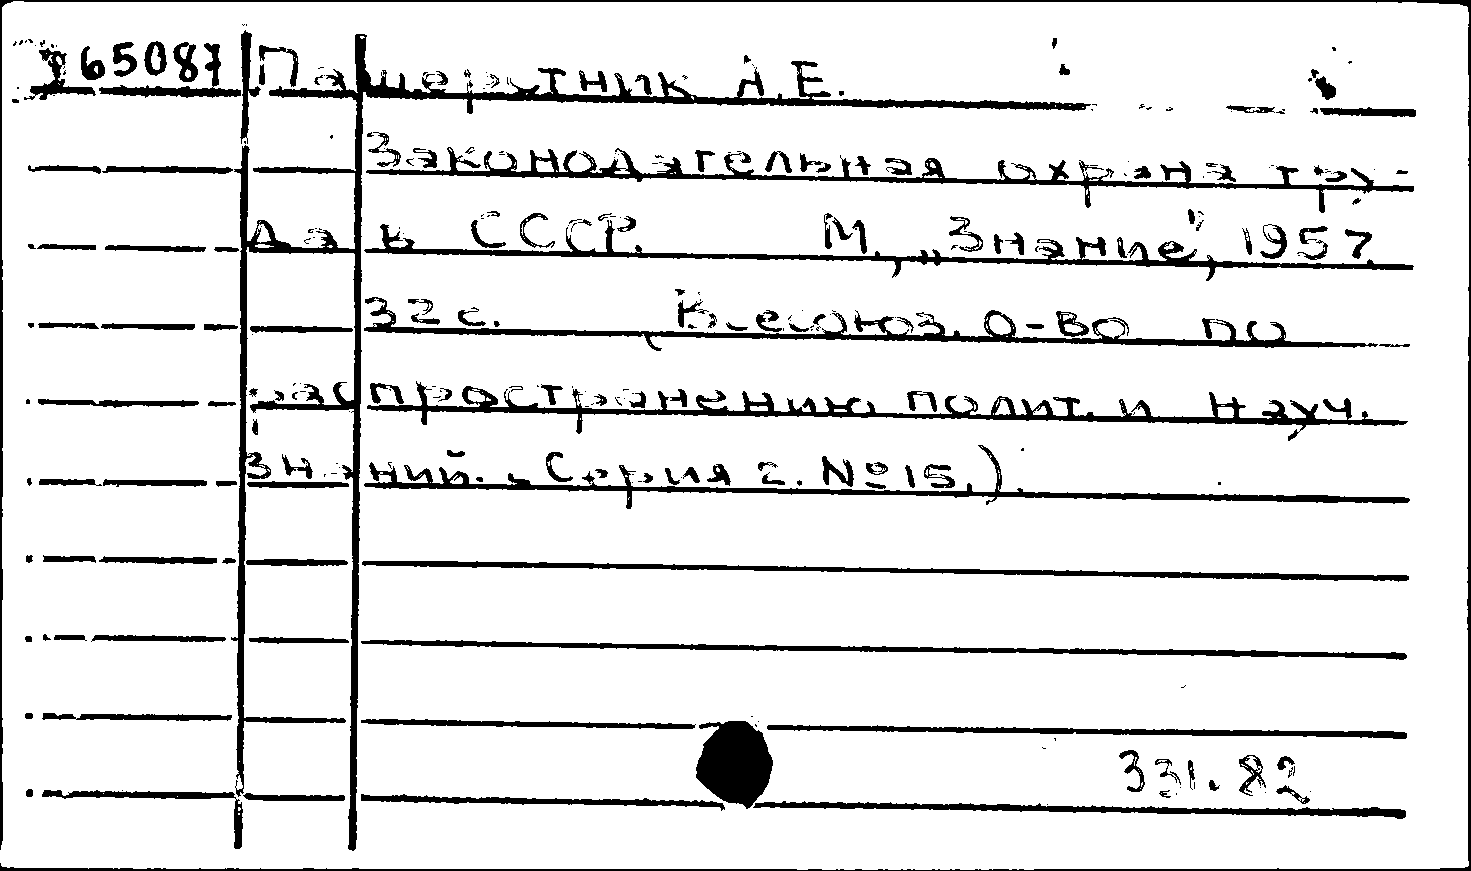 65087 Пашерстник А.Е.
Законодательная охрана тру-
да в СССР. М., „Знание", 1957.
32 с. (Всесоюз. о-во по
распространению полит. и науч.
знаний. Серия 2. № 15.)
331.82